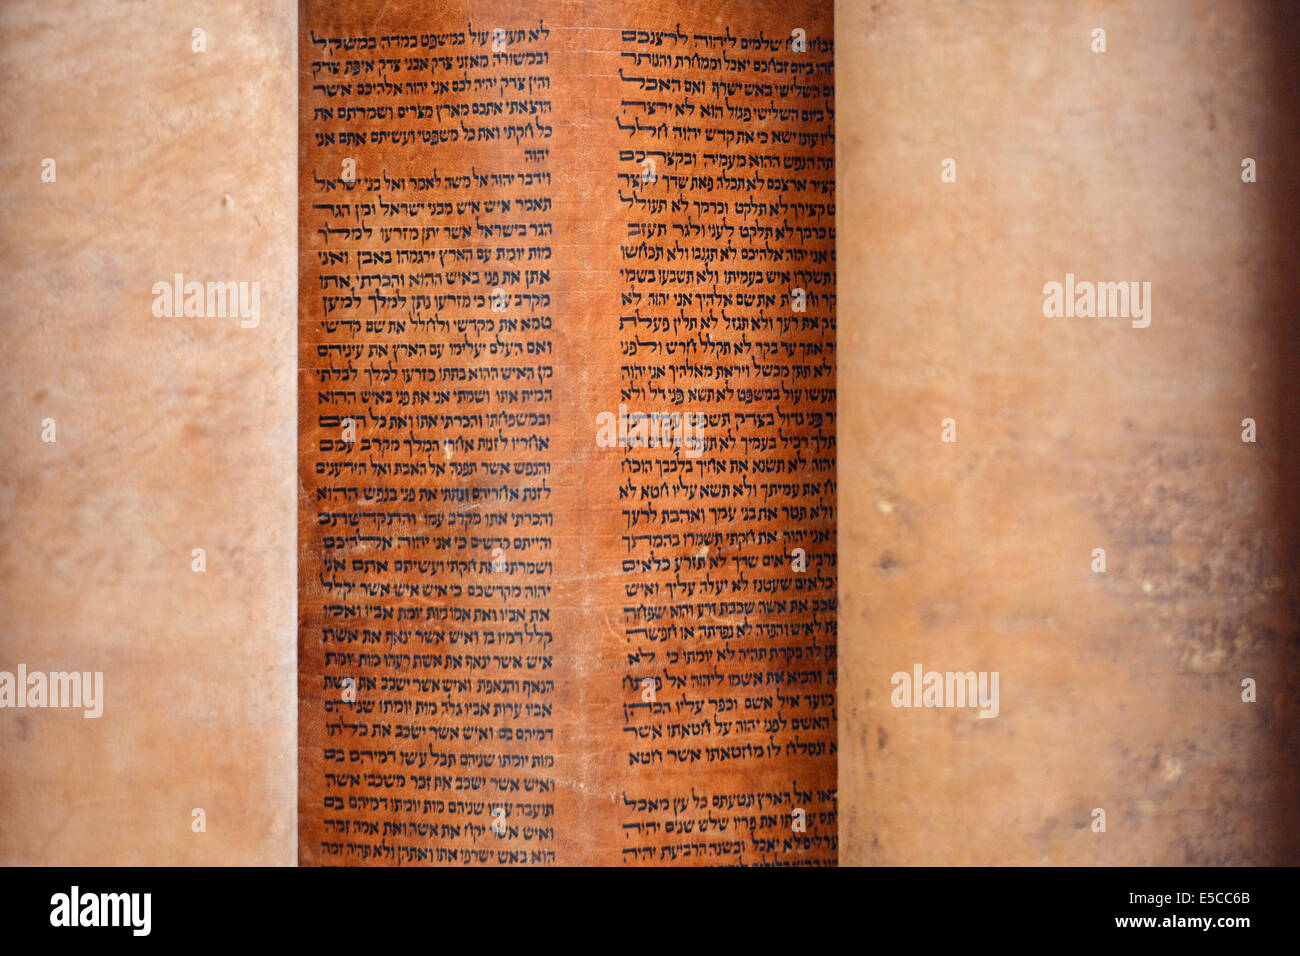 זבח שלמים ליהוה לרצנכם
ביום זבחכם יאכל וממחרת והנותר
השלישי באש ישרף ואם האכל
ביום השלישי פגול הוא לא ירצה
עונו ישא כי את קדש יהוה חלל
הנפש ההוא מעמיה ובקצרכם
קציר ארצכם לא תכלה פאת שדך לקצר
קצירך לא תלקט וכרמך לא תעולל
כרמך לא תלקט לעני ולגר תעזב
אני יהוה אלהיכם לא תגנבו ולא תכחשו
תשקרו איש בעמיתו ולא תשבעו בשמי
וחללת את שם אלהיך אני יהוה לא
את רעך ולא תגזל לא תלין פעלת
אתך עד בקר לא תקלל חרש ולפני
לא תתן מכשל ויראת מאלהיך אני יהוה
תעשו עול במשפט לא תשא פני דל ולא
פני גדול בצדק תשפט עמיתך
תלך רכיל בעמיך לא תעמד על דם רעך
יהוה לא תשנא את אחיך בלבבך הוכח
את עמיתך ולא תשא עליו חטא לא
ולא תטר את בני עמך ואהבת לרעך
אני יהוה את חקתי תשמרו בהמתך
תרביע כלאים שדך לא תזרע כלאים
כלאים שעטנז לא יעלה עליך ואיש
ישכב את אשה שכבת זרע והוא שפחה
לאיש והפדה לא נפדתה או חפשה
לה בקרת תהיה לא יומתו כי לא
והביא את אשמו ליהוה אל פתח
מועד איל אשם וכפר עליו הכהן
האשם לפני יהוה על חטאתו אשר
ונסלח לו מחטאתו אשר חטא
אל הארץ ונטעתם כל עץ מאכל
את פריו שלש שנים יהיה
לא יאכל ובשנה הרביעת יהיה
לא תעשו עול במשפט במדה במשקל
ובמשורה מאזני צדק אבני צדק איפת צדק
והין צדק יהיה לכם אני יהוה אלהיכם אשר
הוצאתי אתכם מארץ מצרים ושמרתם את
כל חקתי ואת כל משפטי ועשיתם אתם אני
יהוה
וידבר יהוה אל משה לאמר ואל בני ישראל
תאמר איש איש מבני ישראל ומן הגר
הגר בישראל אשר יתן מזרעו למלך
מות יומת עם הארץ ירגמהו באבן ואני
אתן את פני באיש ההוא והכרתי אתו
מקרב עמו כי מזרעו נתן למלך למען
טמא את מקדשי ולחלל את שם קדשי
ואם העלם יעלימו עם הארץ את עיניהם
מן האיש ההוא בתתו מזרעו למלך לבלתי
המית אתו ושמתי אני את פני באיש ההוא
ובמשפחתו והכרתי אתו ואת כל הזנים
אחריו לזנות אחרי המלך מקרב עמם
והנפש אשר תפנה אל האבת ואל הידענים
לזנת אחריהם ונתתי את פני בנפש ההוא
והכרתי אתו מקרב עמו והתקדשתם
והייתם קדשים כי אני יהוה אלהיכם
ושמרתם את חקתי ועשיתם אתם אני
יהוה מקדשכם כי איש איש אשר יקלל
את אביו ואת אמו מות יומת אביו ואמו
קלל דמיו בו ואיש אשר ינאף את אשת
איש אשר ינאף את אשת רעהו מות יומת
הנאף והנאפת ואיש אשר ישכב את אשת
אביו ערות אביו גלה מות יומתו שניהם
דמיהם בם ואיש אשר ישכב את כלתו
מות יומתו שניהם תבל עשו דמיהם בם
ואיש אשר ישכב את זכר משכבי אשה
תועבה עשו שניהם מות יומתו דמיהם בם
ואיש אשר יקח את אשה ואת אמה זמה
הוא באש ישרפו אתו ואתהן ולא תהיה זמה
a alamy stock photo
alamy
alamy
alamy
E5CC6B
www.alamy.com